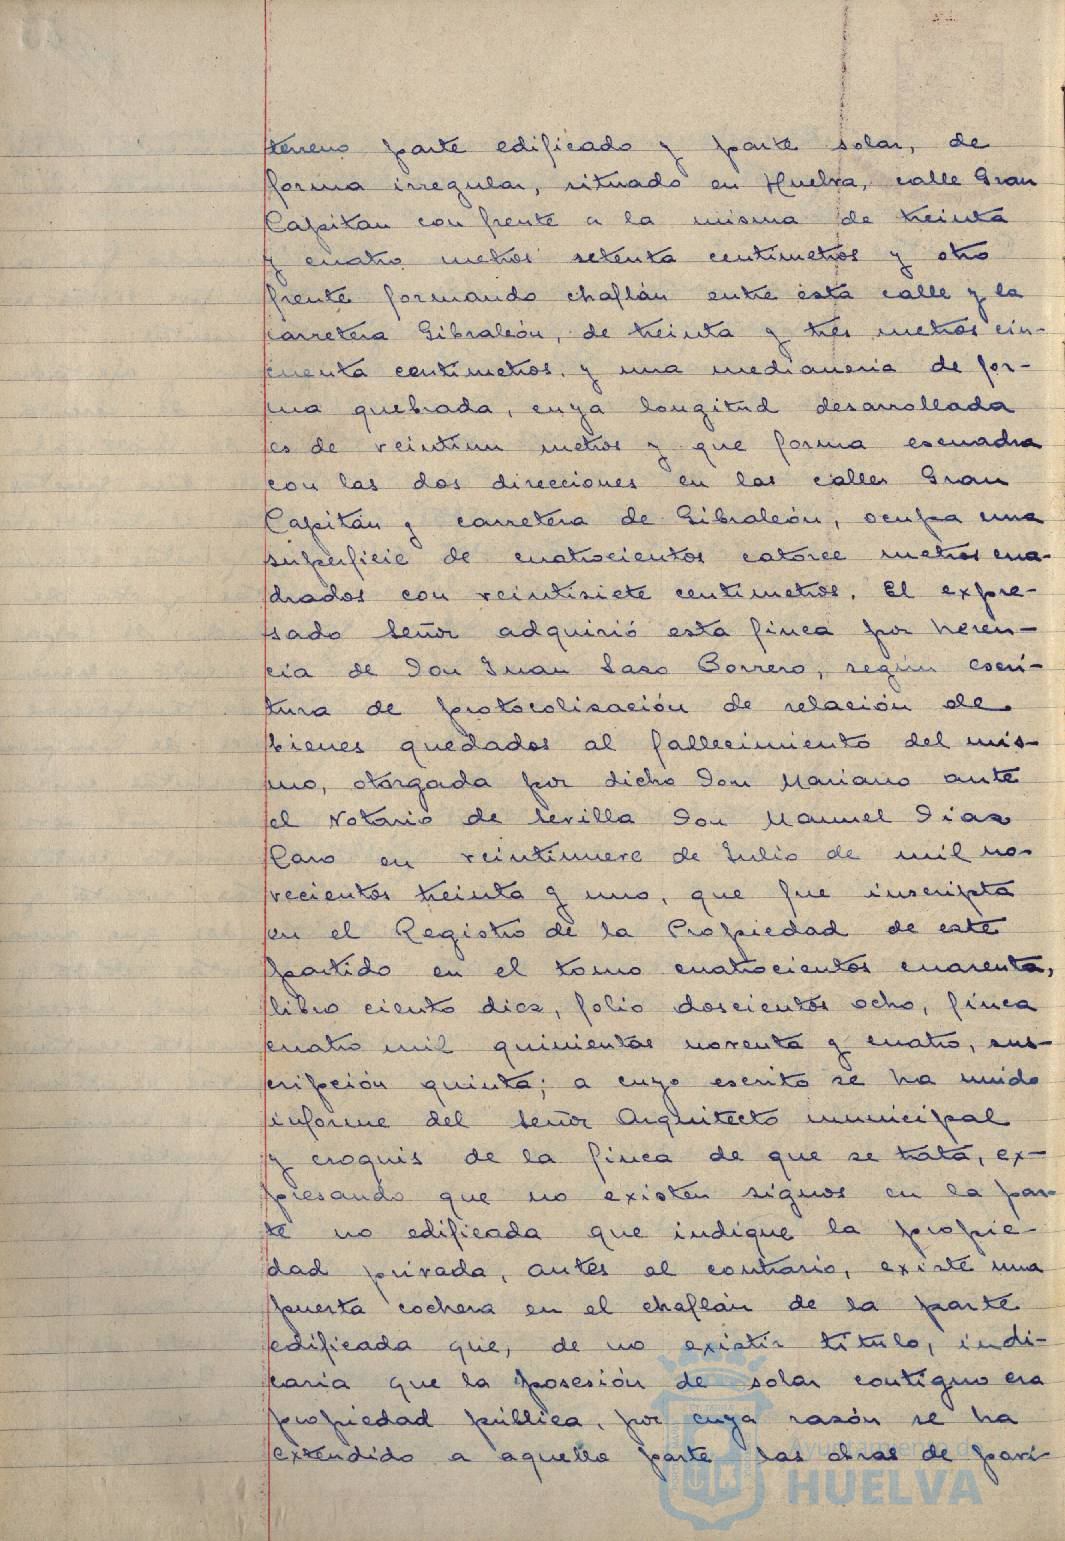 terreno parte edificado y parte solar, de
forma irregular, situado en Huelva, calle Gran
Capitan con frente a la misma de treinta
y cuatro metros setenta centimetros y otro
frente formando chaflán entre esta calle y la
carretera Gibraleón, de treinta y tres metros cin-
cuenta centimetros, y una medianeria de for-
ma quebrada, cuya longitud desarrollada
es de veintiun metros y que forma escuadra
con las dos direcciones en las calles Gran
Capitán y carretera de Gibraleón, ocupa una
superficie de cuatrocientos catorce metros cua-
drados con veintisiete centimetros. El expre-
sado Señor adquirió esta finca por heren-
cia de Don Juan Saso Borrero, según escri-
tura de protocolización de relación de
bienes quedados al fallecimiento del mis-
mo, otorgada por dicho Don Mariano ante
el Notario de Sevilla Don Manuel Diaz
Caro en veintinueve de Julio de mil no-
vecientos treinta y uno, que fue inscripta
en el Registro de la Propiedad de este
partido en el tomo cuatrocientos cuarenta,
libro ciento diez, folio doscientos ocho, finca
cuatro mil quinientos noventa y cuatro, sus-
cripción quinta; a cuyo escrito se ha unido
informe del Señor Arquitecto municipal
y croquis de la finca de que se trata, ex-
presando que no existen signos en la par-
te no edificada que indique la propie-
dad privada, antes al contrario, existe una
puerta cochera en el chaflán de la parte
edificada que, de no existir título, indi-
caria que la posesión de solar contiguo era
propiedad pública, por cuya razón se ha
extendido a aquella parte las obras de pavi-
Ayuntamiento de
HUELVA